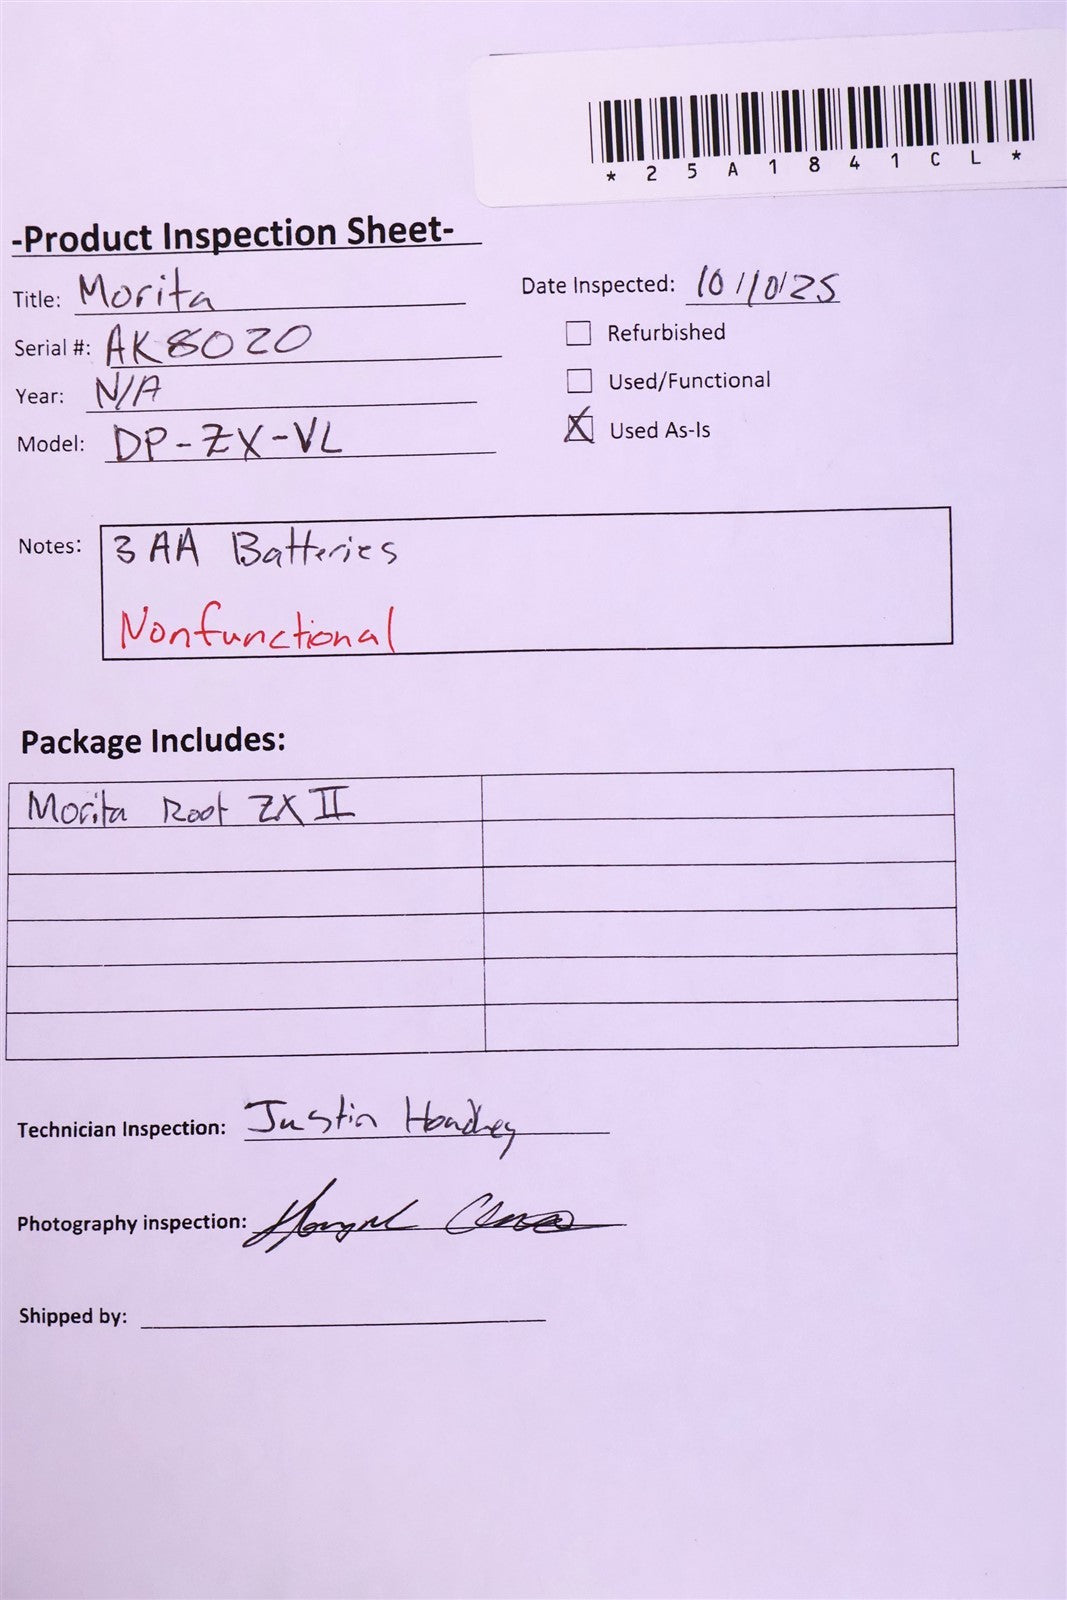 *25A1841CL*
-Product Inspection Sheet-
Title: Morita
Date Inspected: 10/10/25
Serial #: AK8020
Refurbished
Year: N/A
Used/Functional
Model: DP-ZX-VL
X Used As-Is
Notes: 3 AA Batteries
Nonfunctional
Package Includes:
Morita Root ZX II
Technician Inspection: Justin
Photography inspection:
Shipped by: